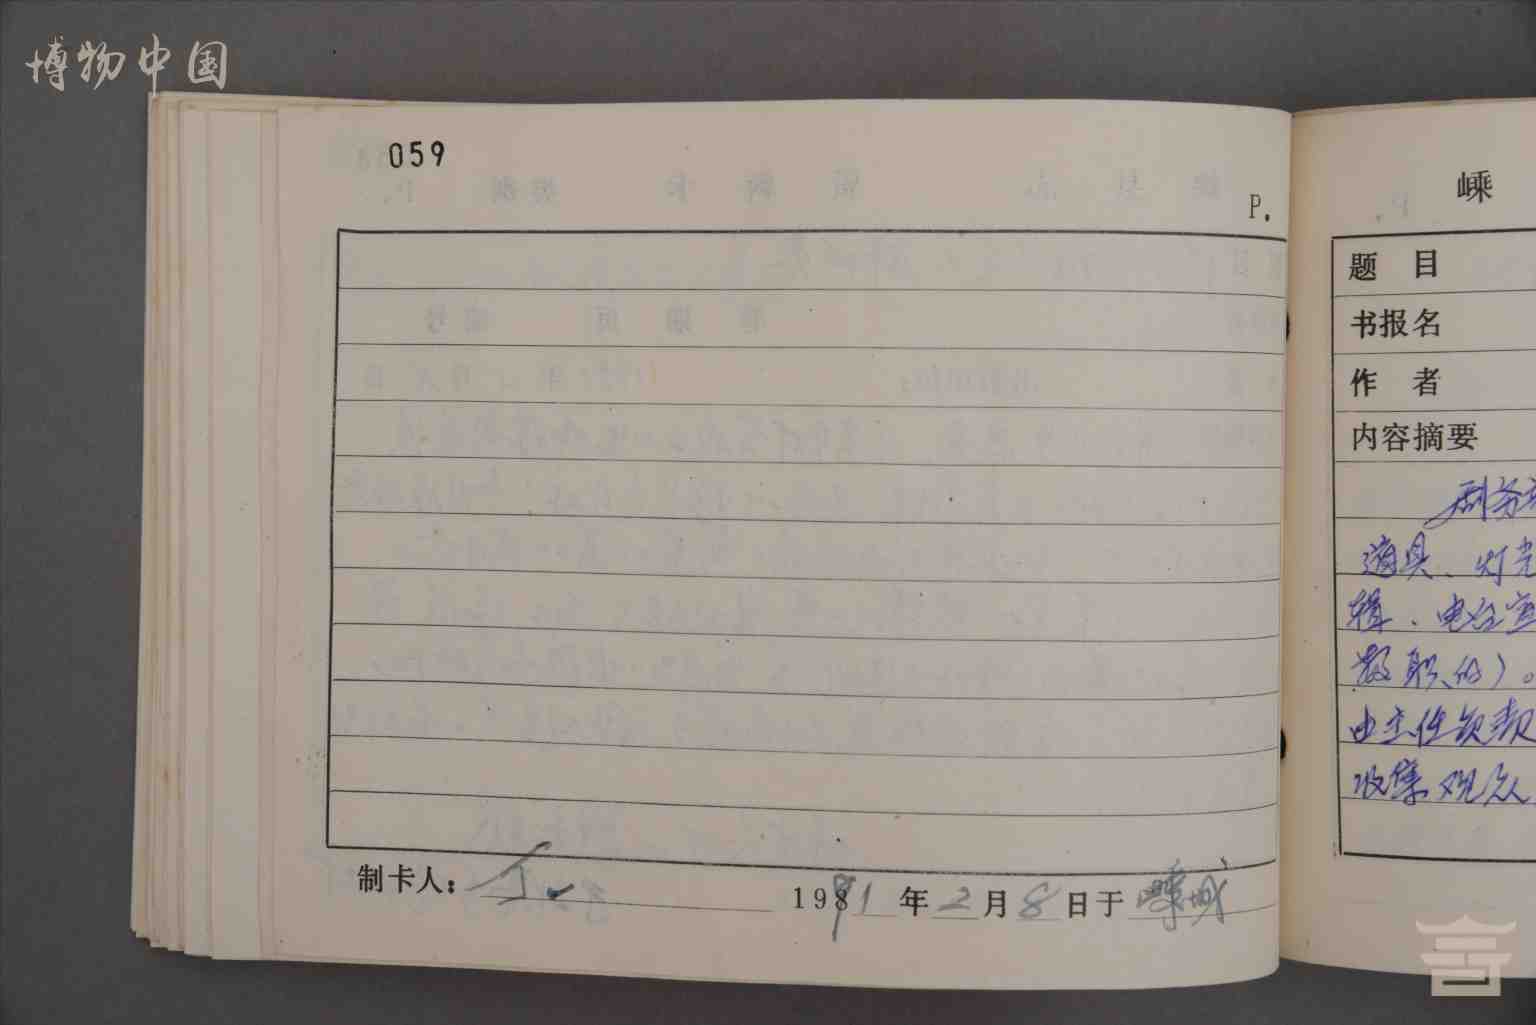 博物中国
059
P.
制卡人：丁
1991年2月8日于嵊城
嵊
题 目
书报名
作 者
内容摘要
剧务
道具、灯光
辑、电台宣
数职的）。
由主任负责
收集观众